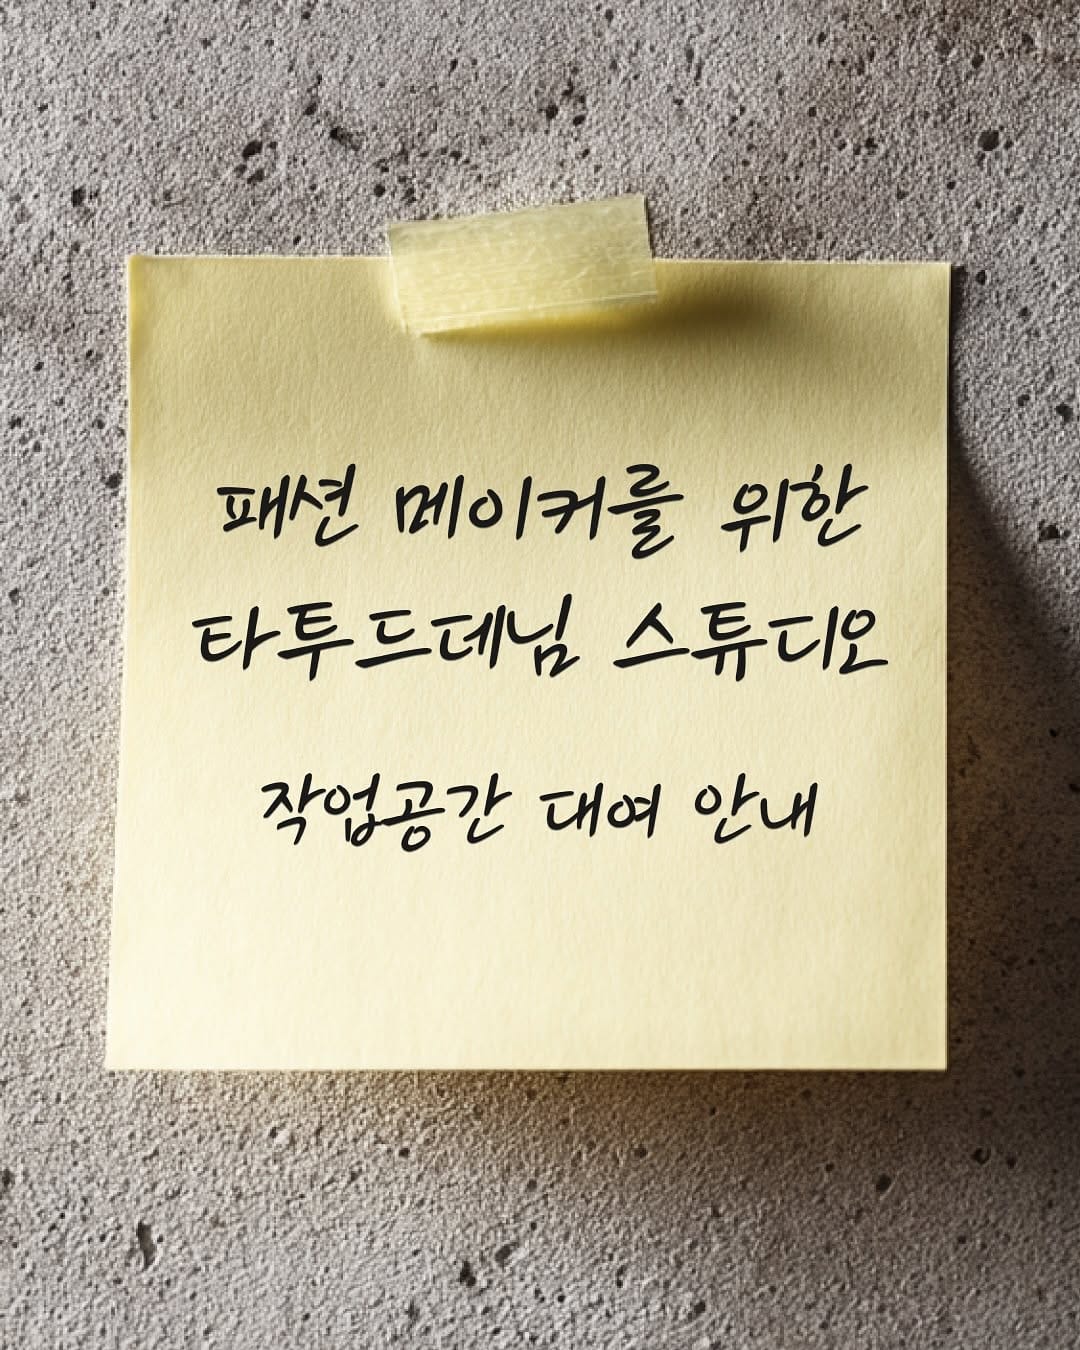 패션 메이커를 위한
타투드데님 스튜디오
작업공간 대여 안내